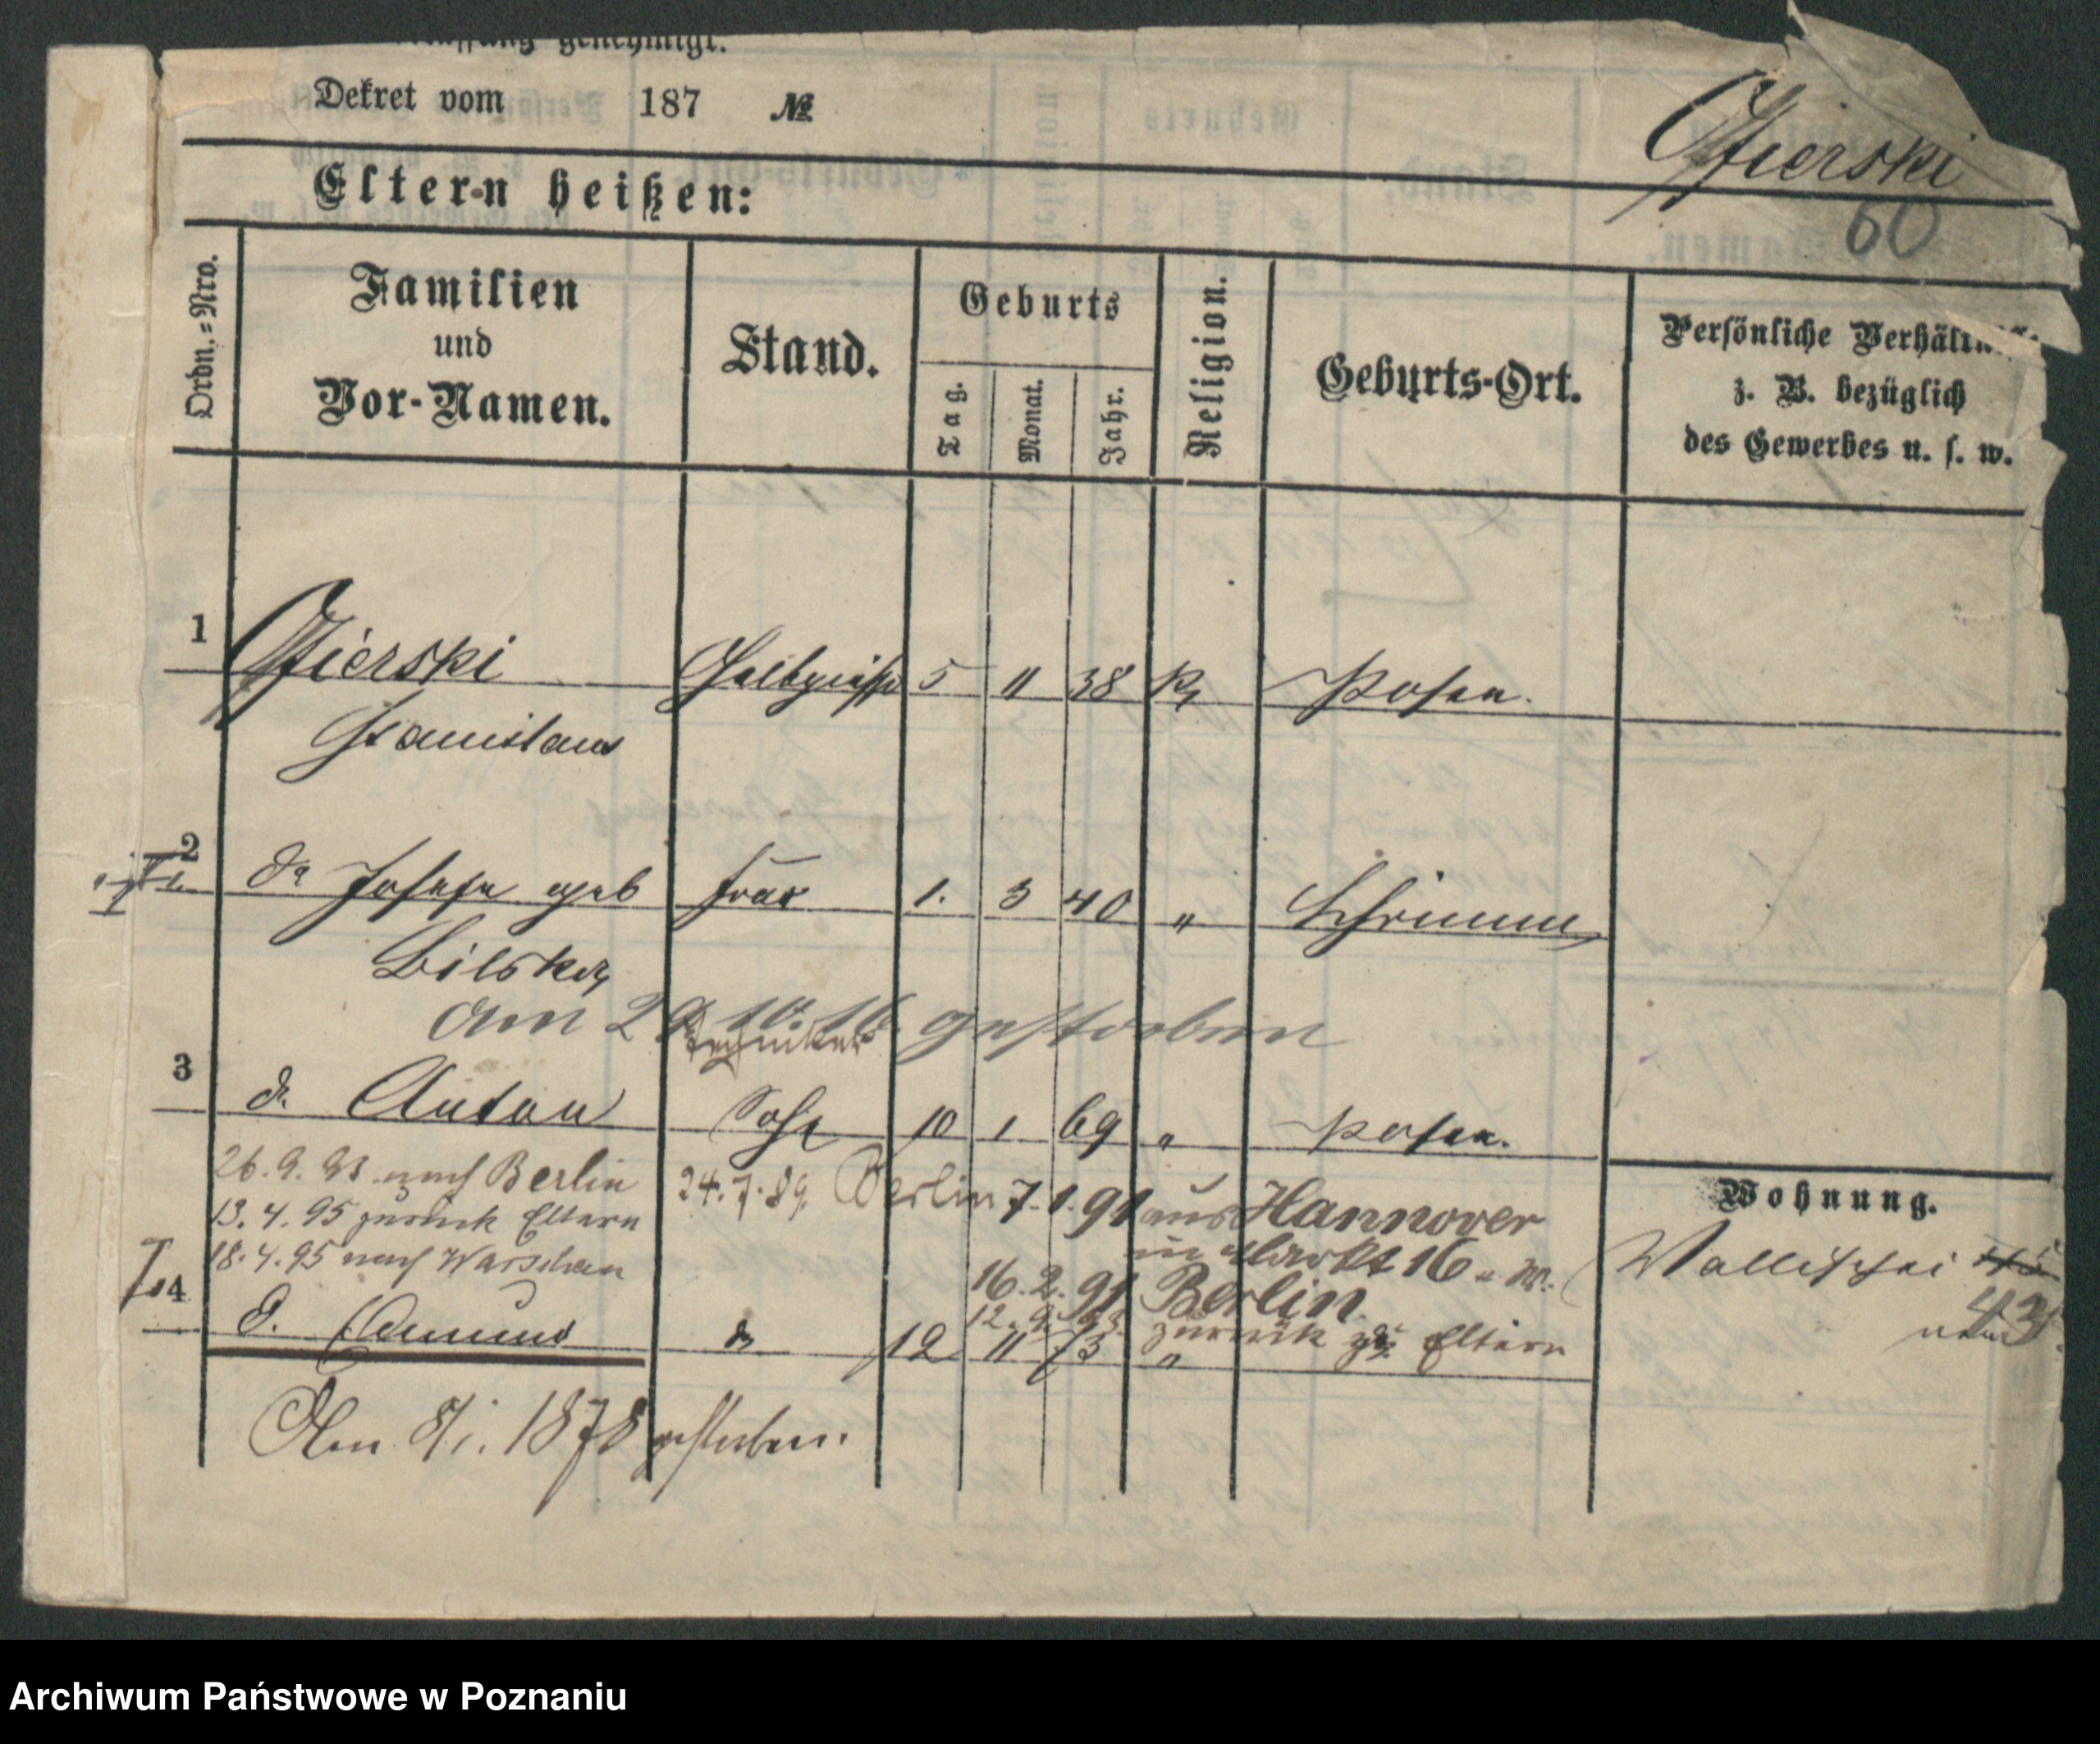 genehmigt.
Dekret vom 187 №
Ofierski
60
Eltern heißen:
Ordn.=Nro.
Familien
und
Vor-Namen.
Stand.
Geburts
Tag.
Monat.
Jahr.
Religion.
Geburts-Ort.
Persönliche
z. B. bezüglich
des Gewerbes u. s. w.
1
Ofierski 5 11 38 K Posen.
Stanislaus
2
do Josefa geb Frau 1. 3 40 " Schrimm
Bilska
am 29. 10. 16. gestorben
Techniker
3
do. Anton Sohn 10 1 69 " Posen.
26. 9. 93. nach Berlin
24. 7. 89. Berlin 7. 1. 91 aus Hannover
13. 4. 95 zurück Eltern
18. 4. 95 nach Warschau
Markt 16
16. 2. 91 Berlin.
12. 9. 93. zurück zu Eltern
4
d. do 12 11 73 "
Am 8/1. 1878 gestorben.
Wohnung.
Wallischei
43
Archiwum Państwowe w Poznaniu